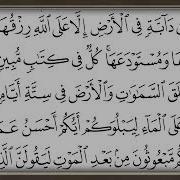 دَآبَّةٍ فِي ٱلْأَرْضِ إِلَّا عَلَى ٱللَّهِ رِزْقُهَا
وَمُسْتَوْدَعَهَاۚ كُلٌّ فِي كِتَٰبٍ مُّبِينٍ
لَقَ ٱلسَّمَٰوَٰتِ وَٱلْأَرْضَ فِي سِتَّةِ أَيَّامٍ
عَلَى ٱلْمَآءِ لِيَبْلُوَكُمْ أَيُّكُمْ أَحْسَنُ عَمَ
مَّبْعُوثُونَ مِنۢ بَعْدِ ٱلْمَوْتِ لَيَقُولَنَّ ٱلَّذ